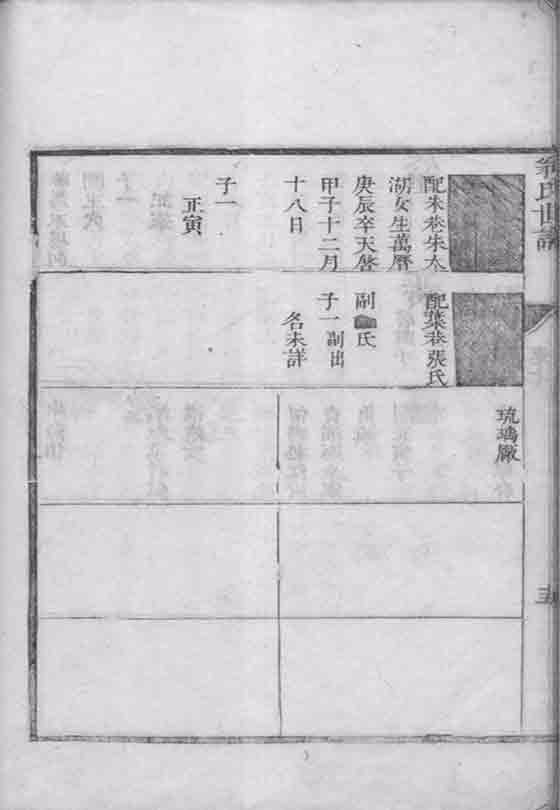 翁氏世譜
配朱巷朱太
湖女生萬曆
庚辰卒天啓
甲子十二月
十八日
子一
正寅
配葉巷張氏
副氏
子一副出
名未詳
琉璃厰